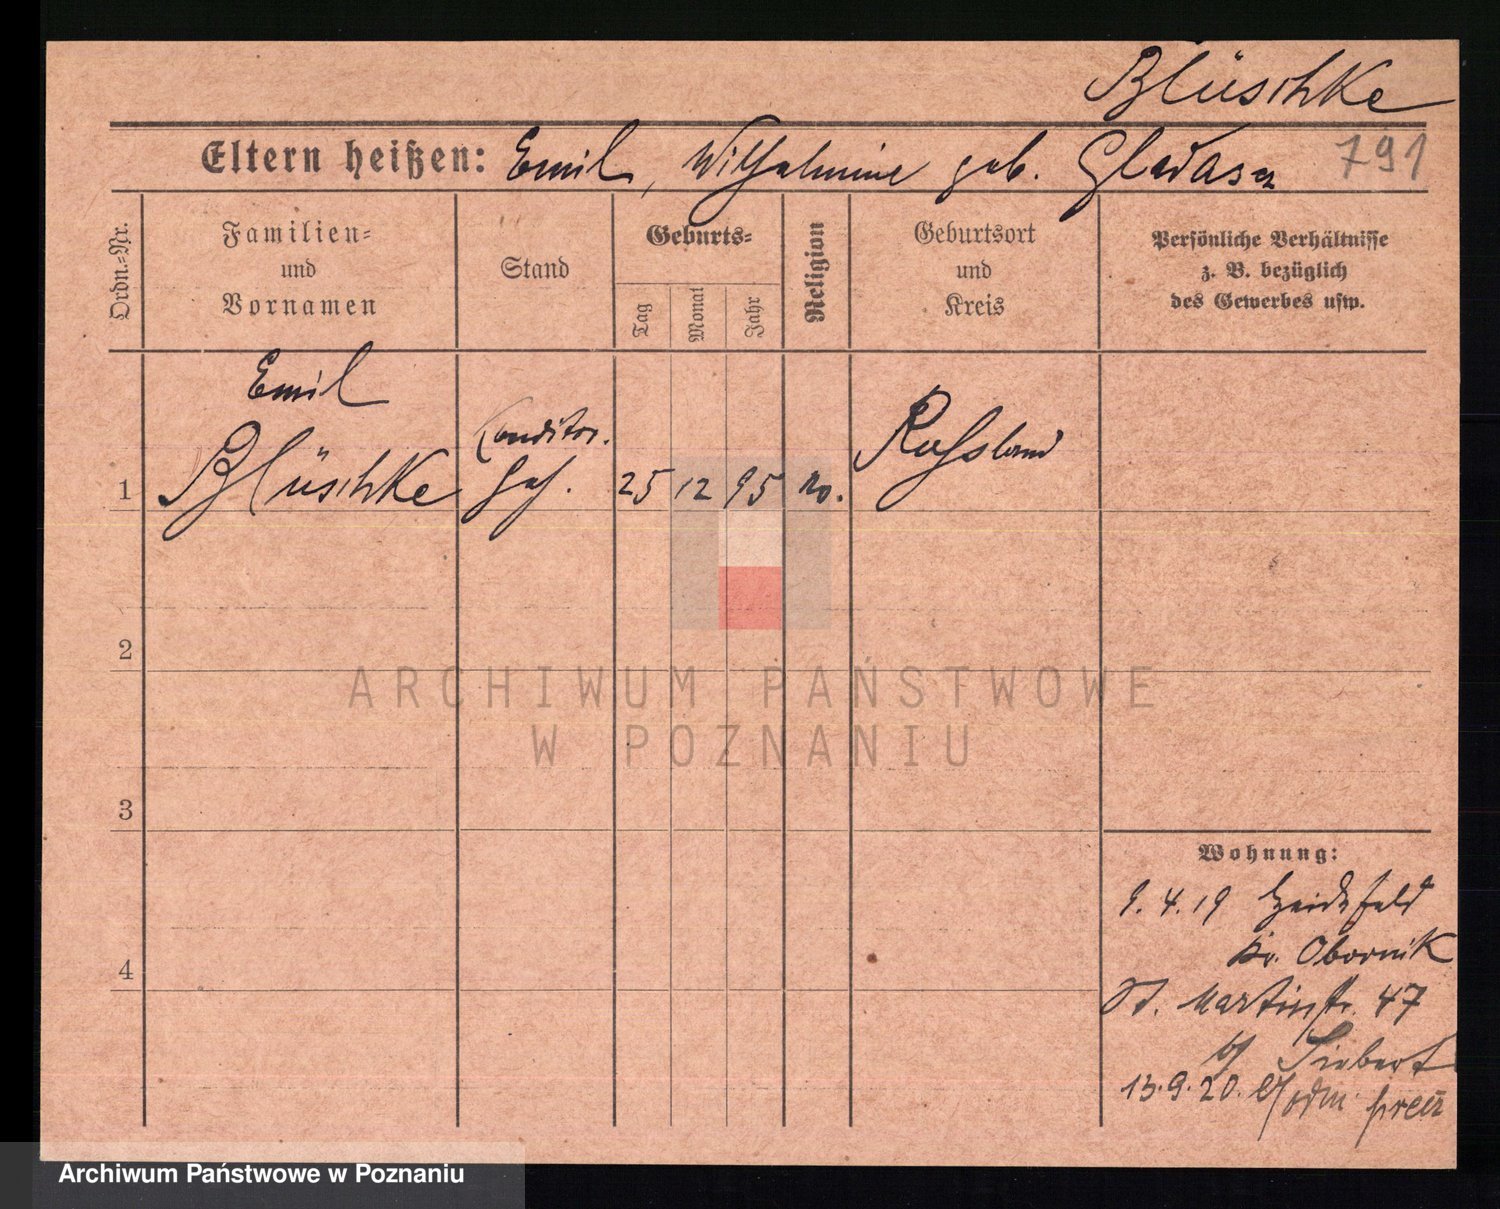 Blüschke
Eltern heißen: Emil, Wilhelmine geb. Gladasch
791
Ordn.-Nr.
Familien-
und
Vornamen
Stand
Geburts-
Tag
Monat
Jahr
Religion
Geburtsort
und
Kreis
Persönliche Verhältnisse
z. B. bezüglich
des Gewerbes usw.
Emil
1 Blüschke
Konditor.
Geh.
25 12 95
Russland
2
3
4
Wohnung:
9. 4. 19 Heidefeld
Kr. Obornik
St. Martinstr. 47
b/ Siebert
13. 9. 20.
ARCHIWUM PAŃSTWOWE
W POZNANIU
Archiwum Państwowe w Poznaniu